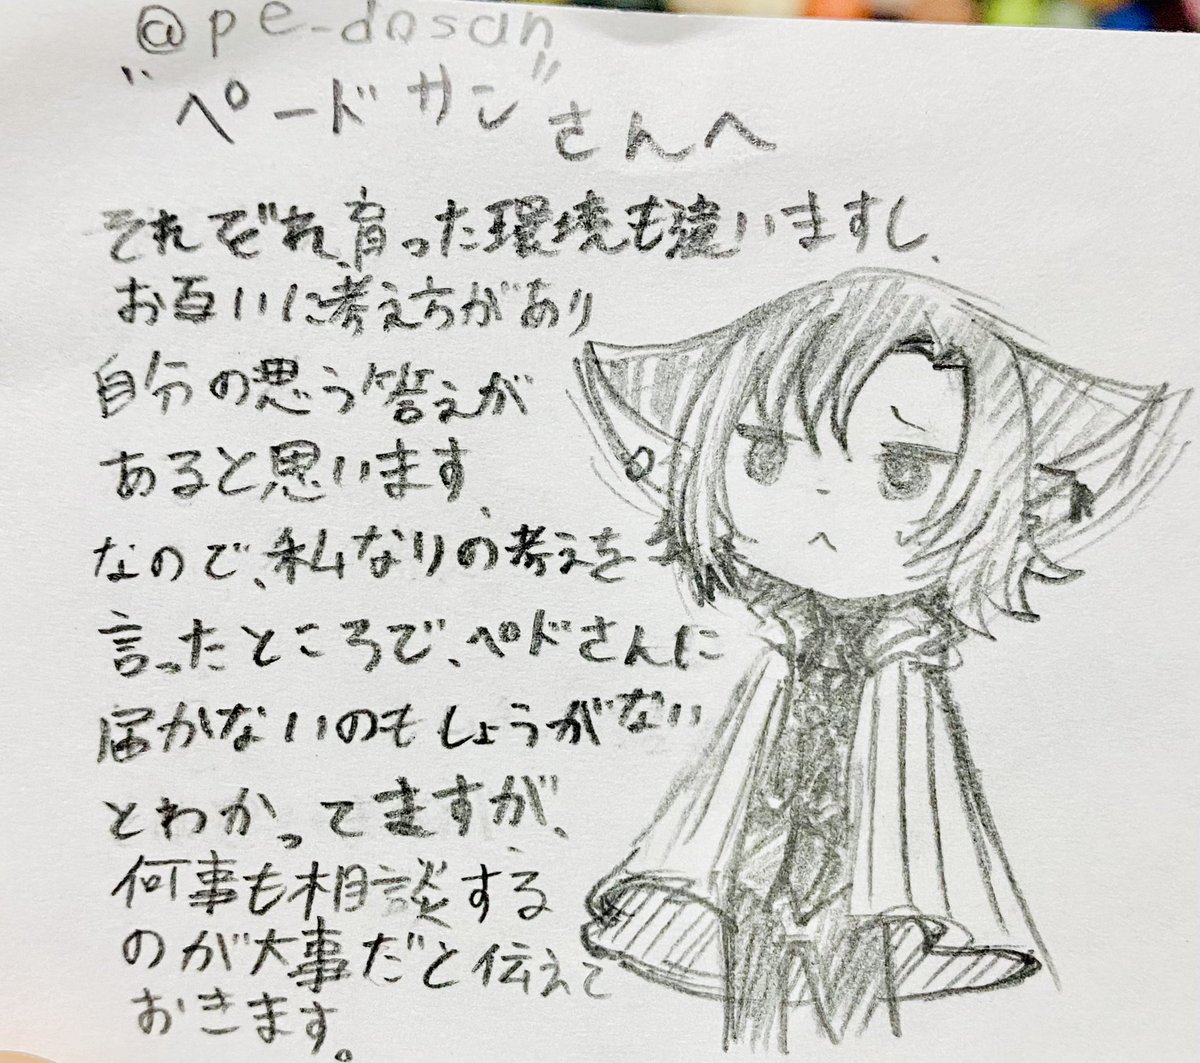 @pe_dosan
"ペードサン"さんへ
それぞれ、育った環境も違いますし、
お互いに考え方があり
自分の思う答えが
あると思います、
なので、私なりの考えを
言ったところで、ペドさんに
届かないのもしょうがない
とわかってますが、
何事も相談する
のが大事だと伝えて
おきます。